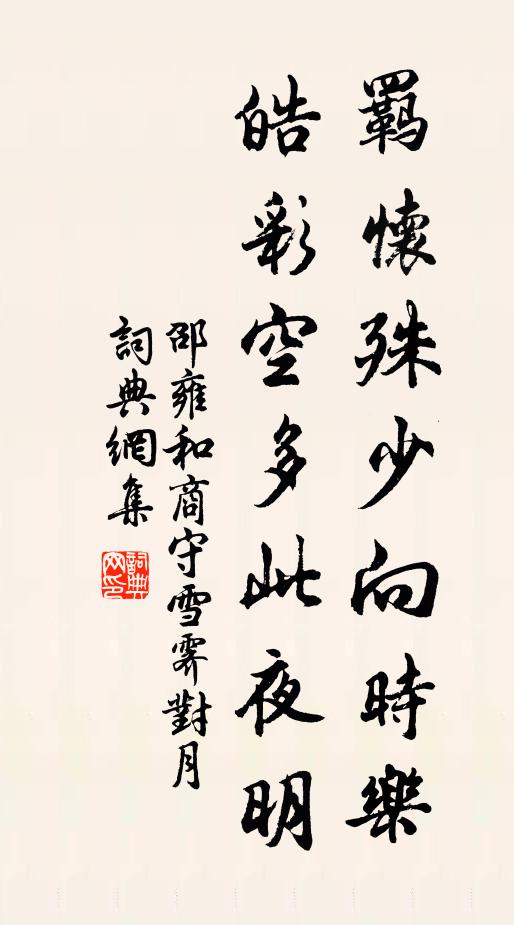 羈懷殊少向時樂
皓彩空多此夜明
邵雍和商守雪霽對月
詞典網集
詞典